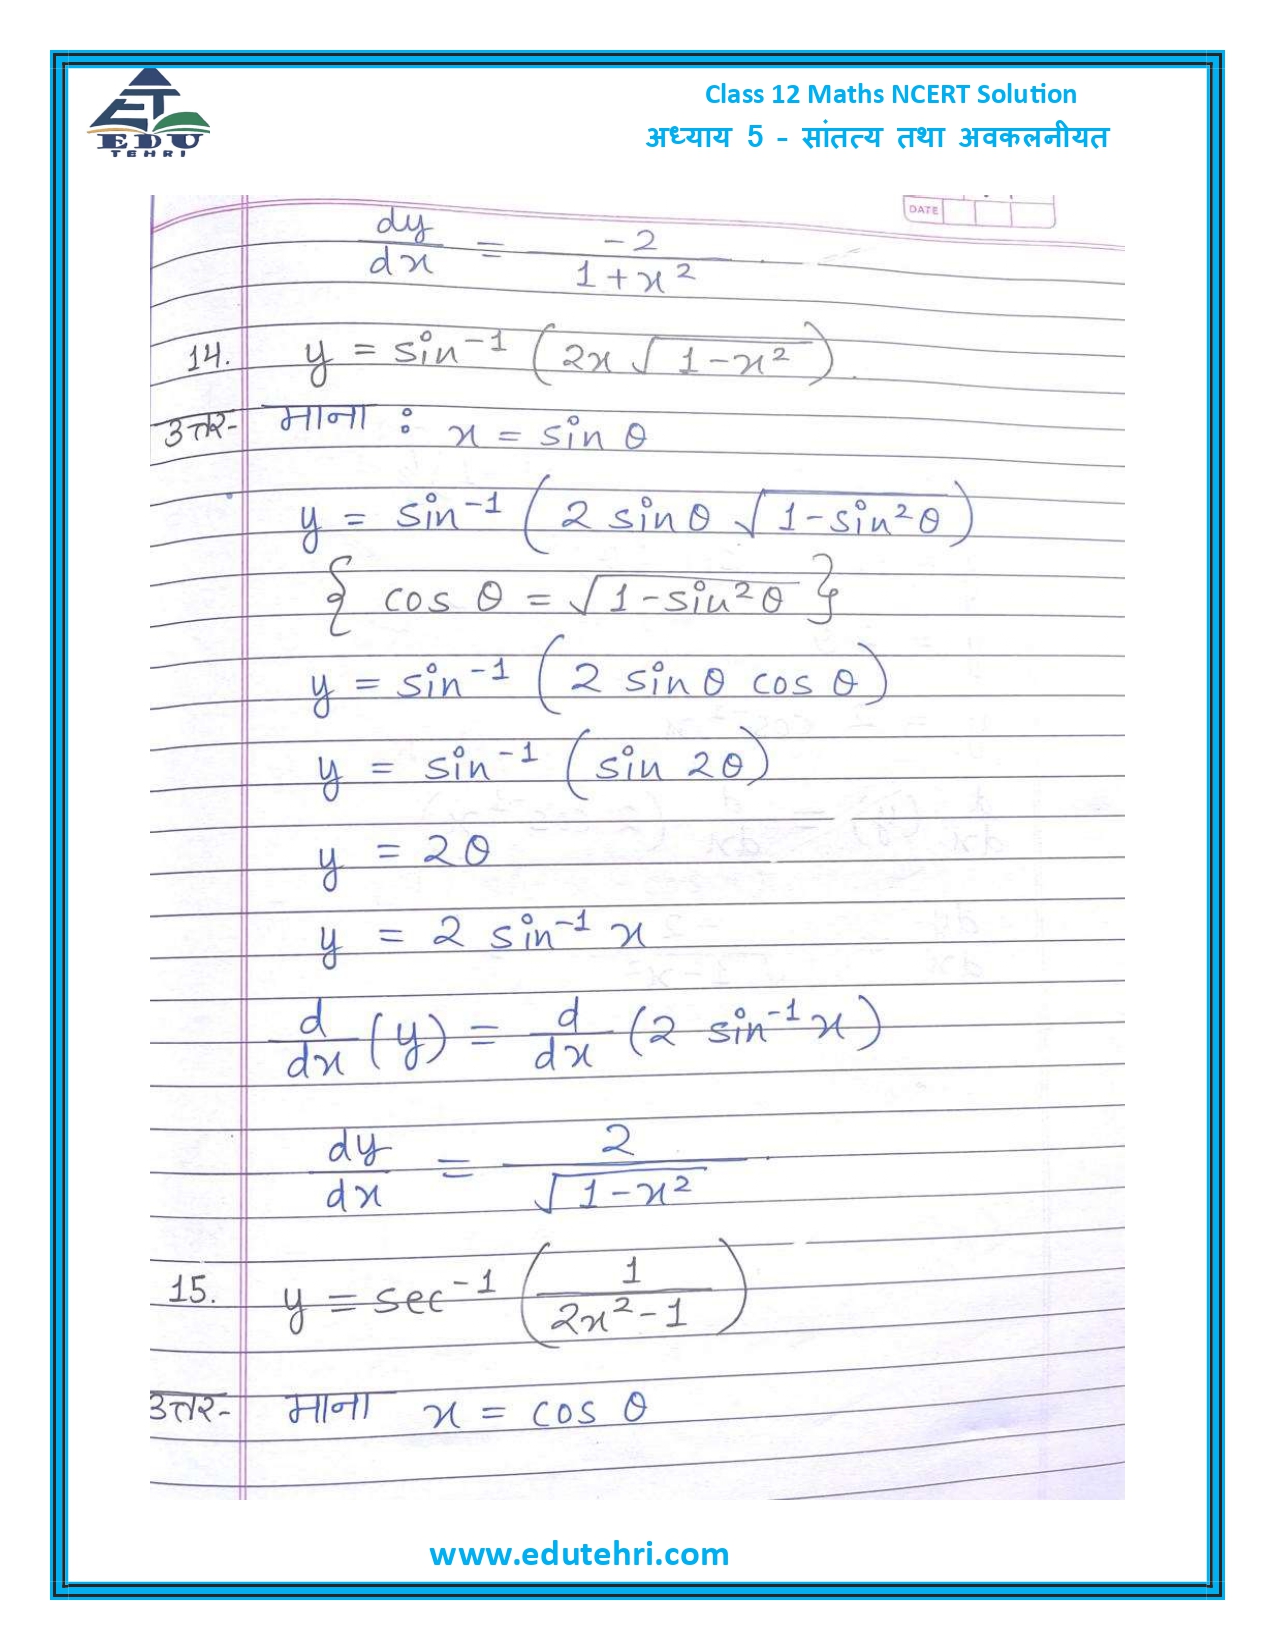 Class 12 Maths NCERT Solution
अध्याय 5 - सांतत्य तथा अवकलनीयत
EDU
TEHRI
DATE
dy/dx = -2/(1+x²)
14. y = sin⁻¹ (2x√(1-x²))
उत्तर- माना : x = sin θ
y = sin⁻¹ (2 sin θ √(1-sin²θ))
{ cos θ = √(1-sin²θ) }
y = sin⁻¹ (2 sin θ cos θ)
y = sin⁻¹ (sin 2θ)
y = 2θ
y = 2 sin⁻¹ x
d/dx (y) = d/dx (2 sin⁻¹ x)
dy/dx = 2/√(1-x²)
15. y = sec⁻¹ (1/(2x²-1))
उत्तर- माना x = cos θ
www.edutehri.com